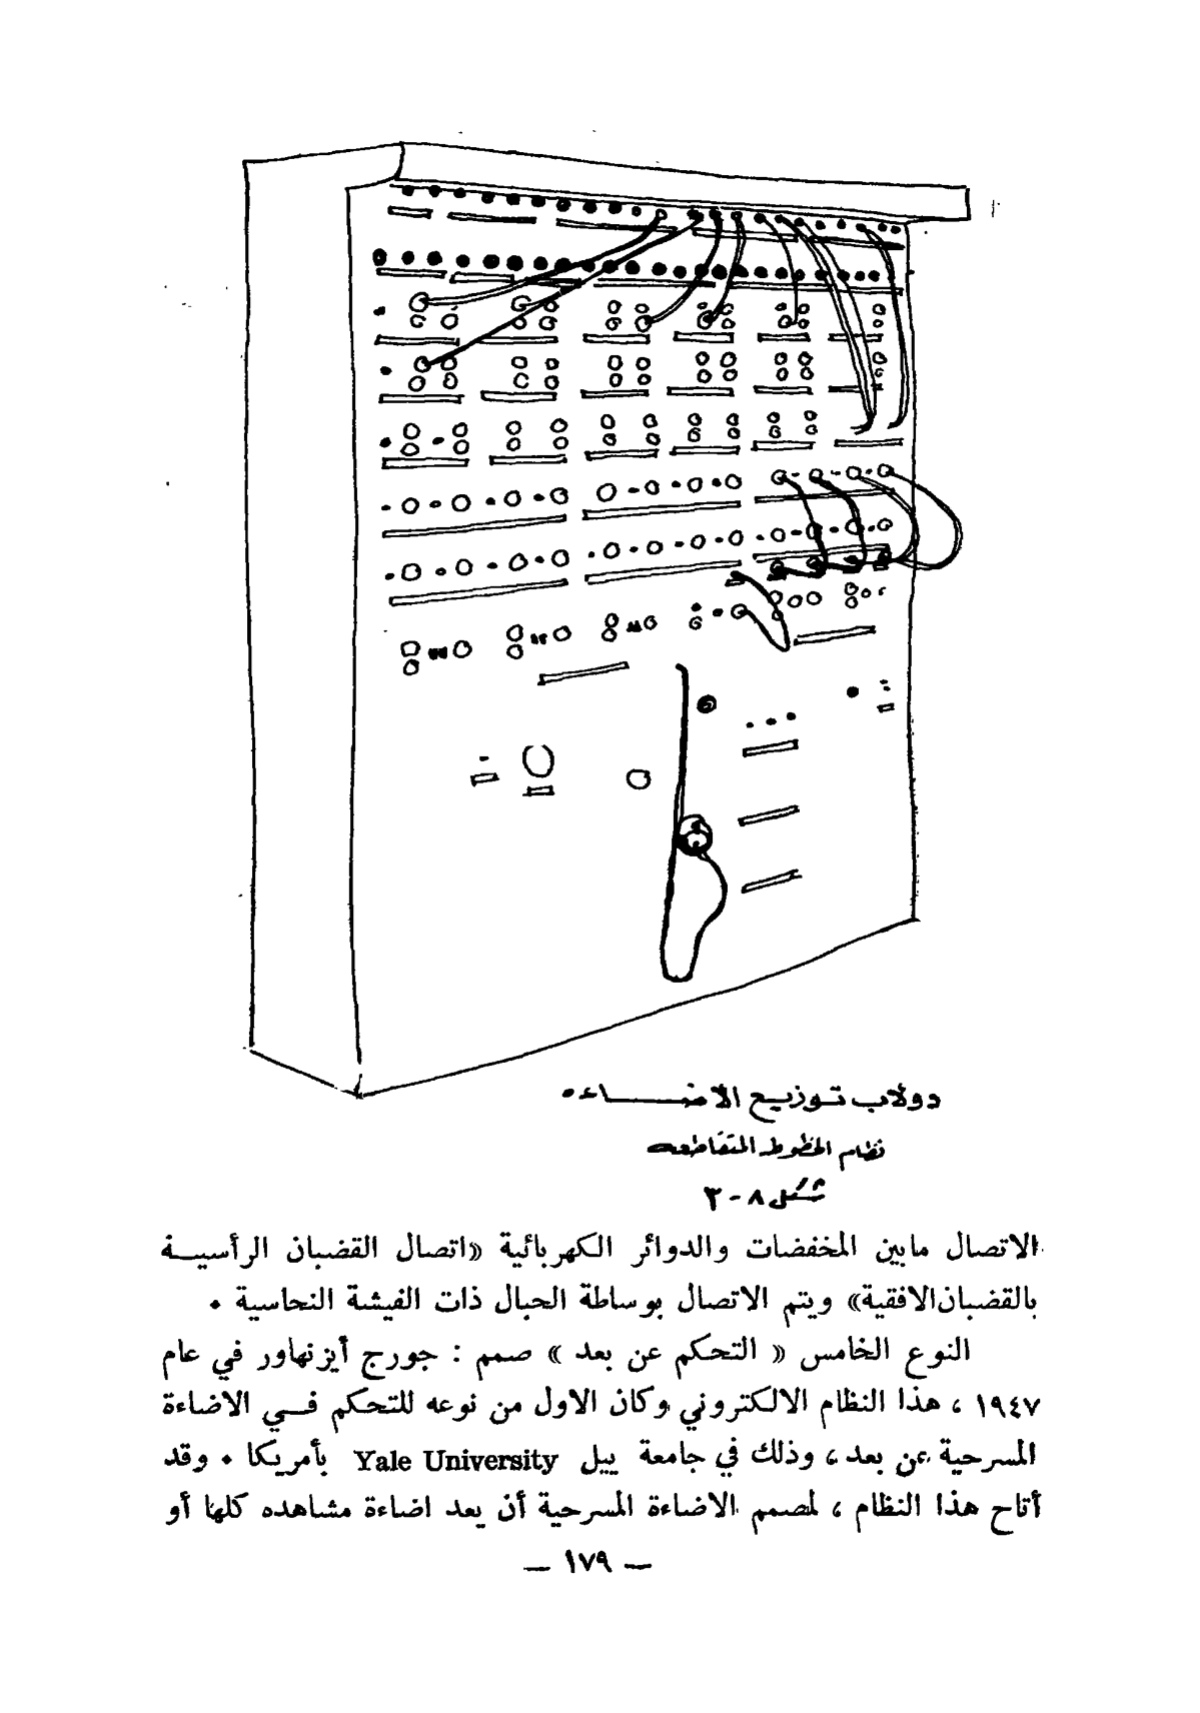 دولاب تـوزيـع الاضـــــاءه
نظام الخطوط المتقاطعه
شكل ٨-٣
الاتصال مابين المخفضات والدوائر الكهربائية «اتصال القضبان الرأسيـــة
بالقضبان الافقية» ويتم الاتصال بوساطة الحبال ذات الفيشة النحاسية ٠
النوع الخامس « التحكم عن بعد » صمم : جورج أيزنهاور في عام
١٩٤٧ ، هذا النظام الالكتروني وكان الاول من نوعه للتحكم فـــي الاضاءة
المسرحية عن بعد ، وذلك في جامعة ييل Yale University بأمريكا ٠ وقد
أتاح هذا النظام ، لمصمم الاضاءة المسرحية أن يعد اضاءة مشاهده كلها أو
— ١٧٩ —